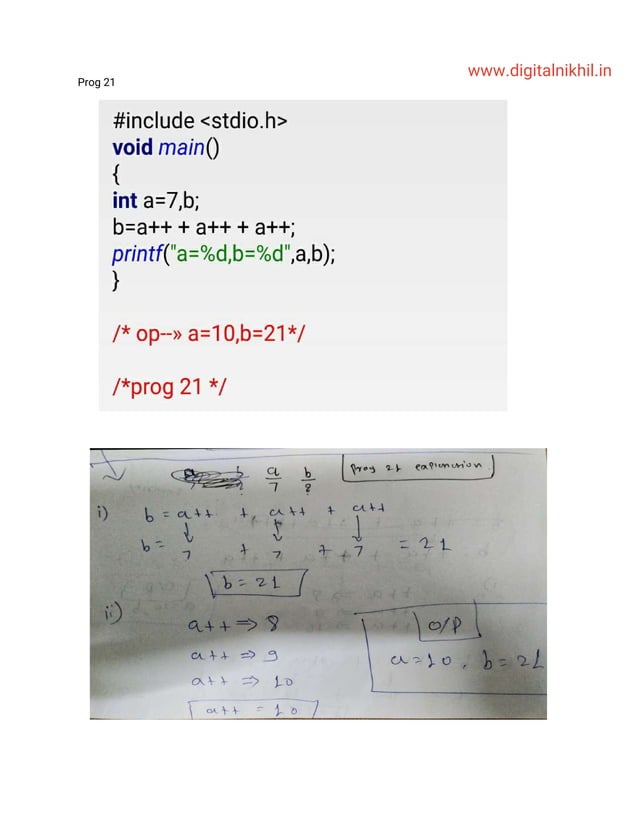 www.digitalnikhil.in
Prog 21
#include <stdio.h>
void main()
{
int a=7,b;
b=a++ + a++ + a++;
printf("a=%d,b=%d",a,b);
}
/* op--» a=10,b=21*/
/*prog 21 */
a b
7 ?
Prog 21 explanation
i) b = a++ + a++ + a++
b= 7 + 7 + 7 = 21
b = 21
ii)
a++ ⇒ 8
a++ ⇒ 9
a++ ⇒ 10
a++ = 10
O/P
a=10, b=21